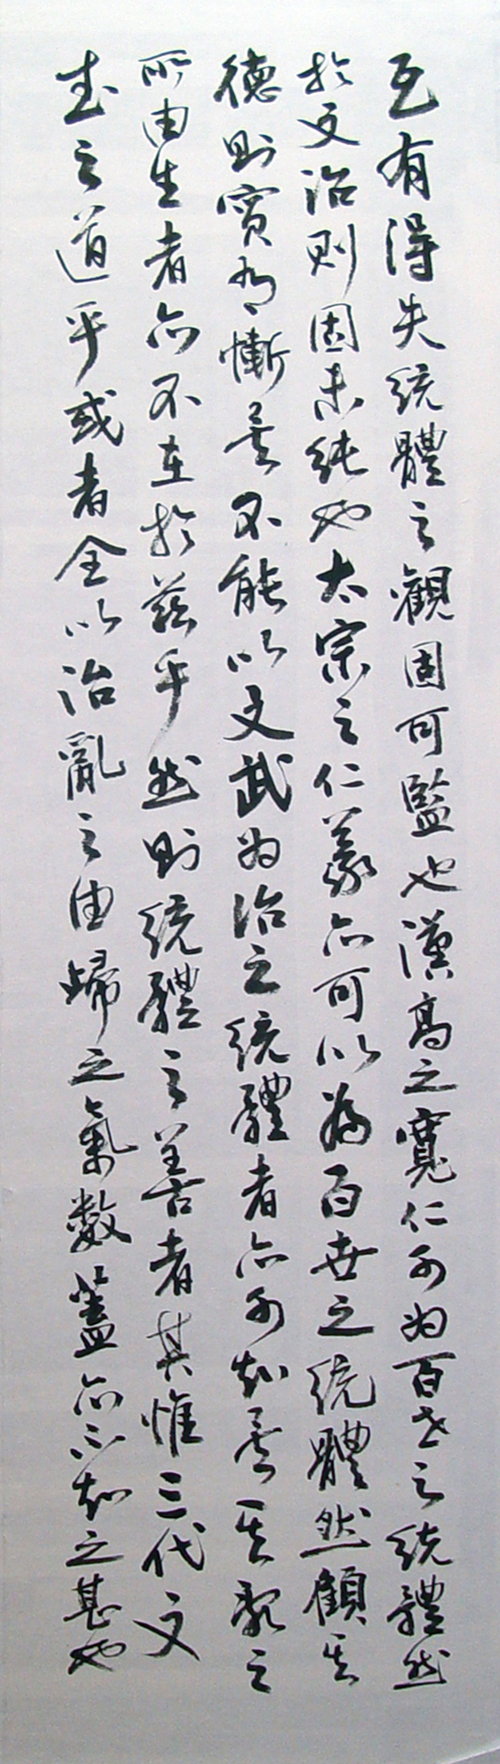 互有得失統體之觀固可監也漢高之寬仁可為百世之統體然
於文治則固未純也太宗之仁義亦可以為百世之統體然顧其
德則實有慚矣不能以文武為治之統體者亦可知矣其亂之
所由生者亦不在於茲乎然則統體之善者其惟三代文
武之道乎或者全以治亂之由歸之氣數蓋亦不知之甚也